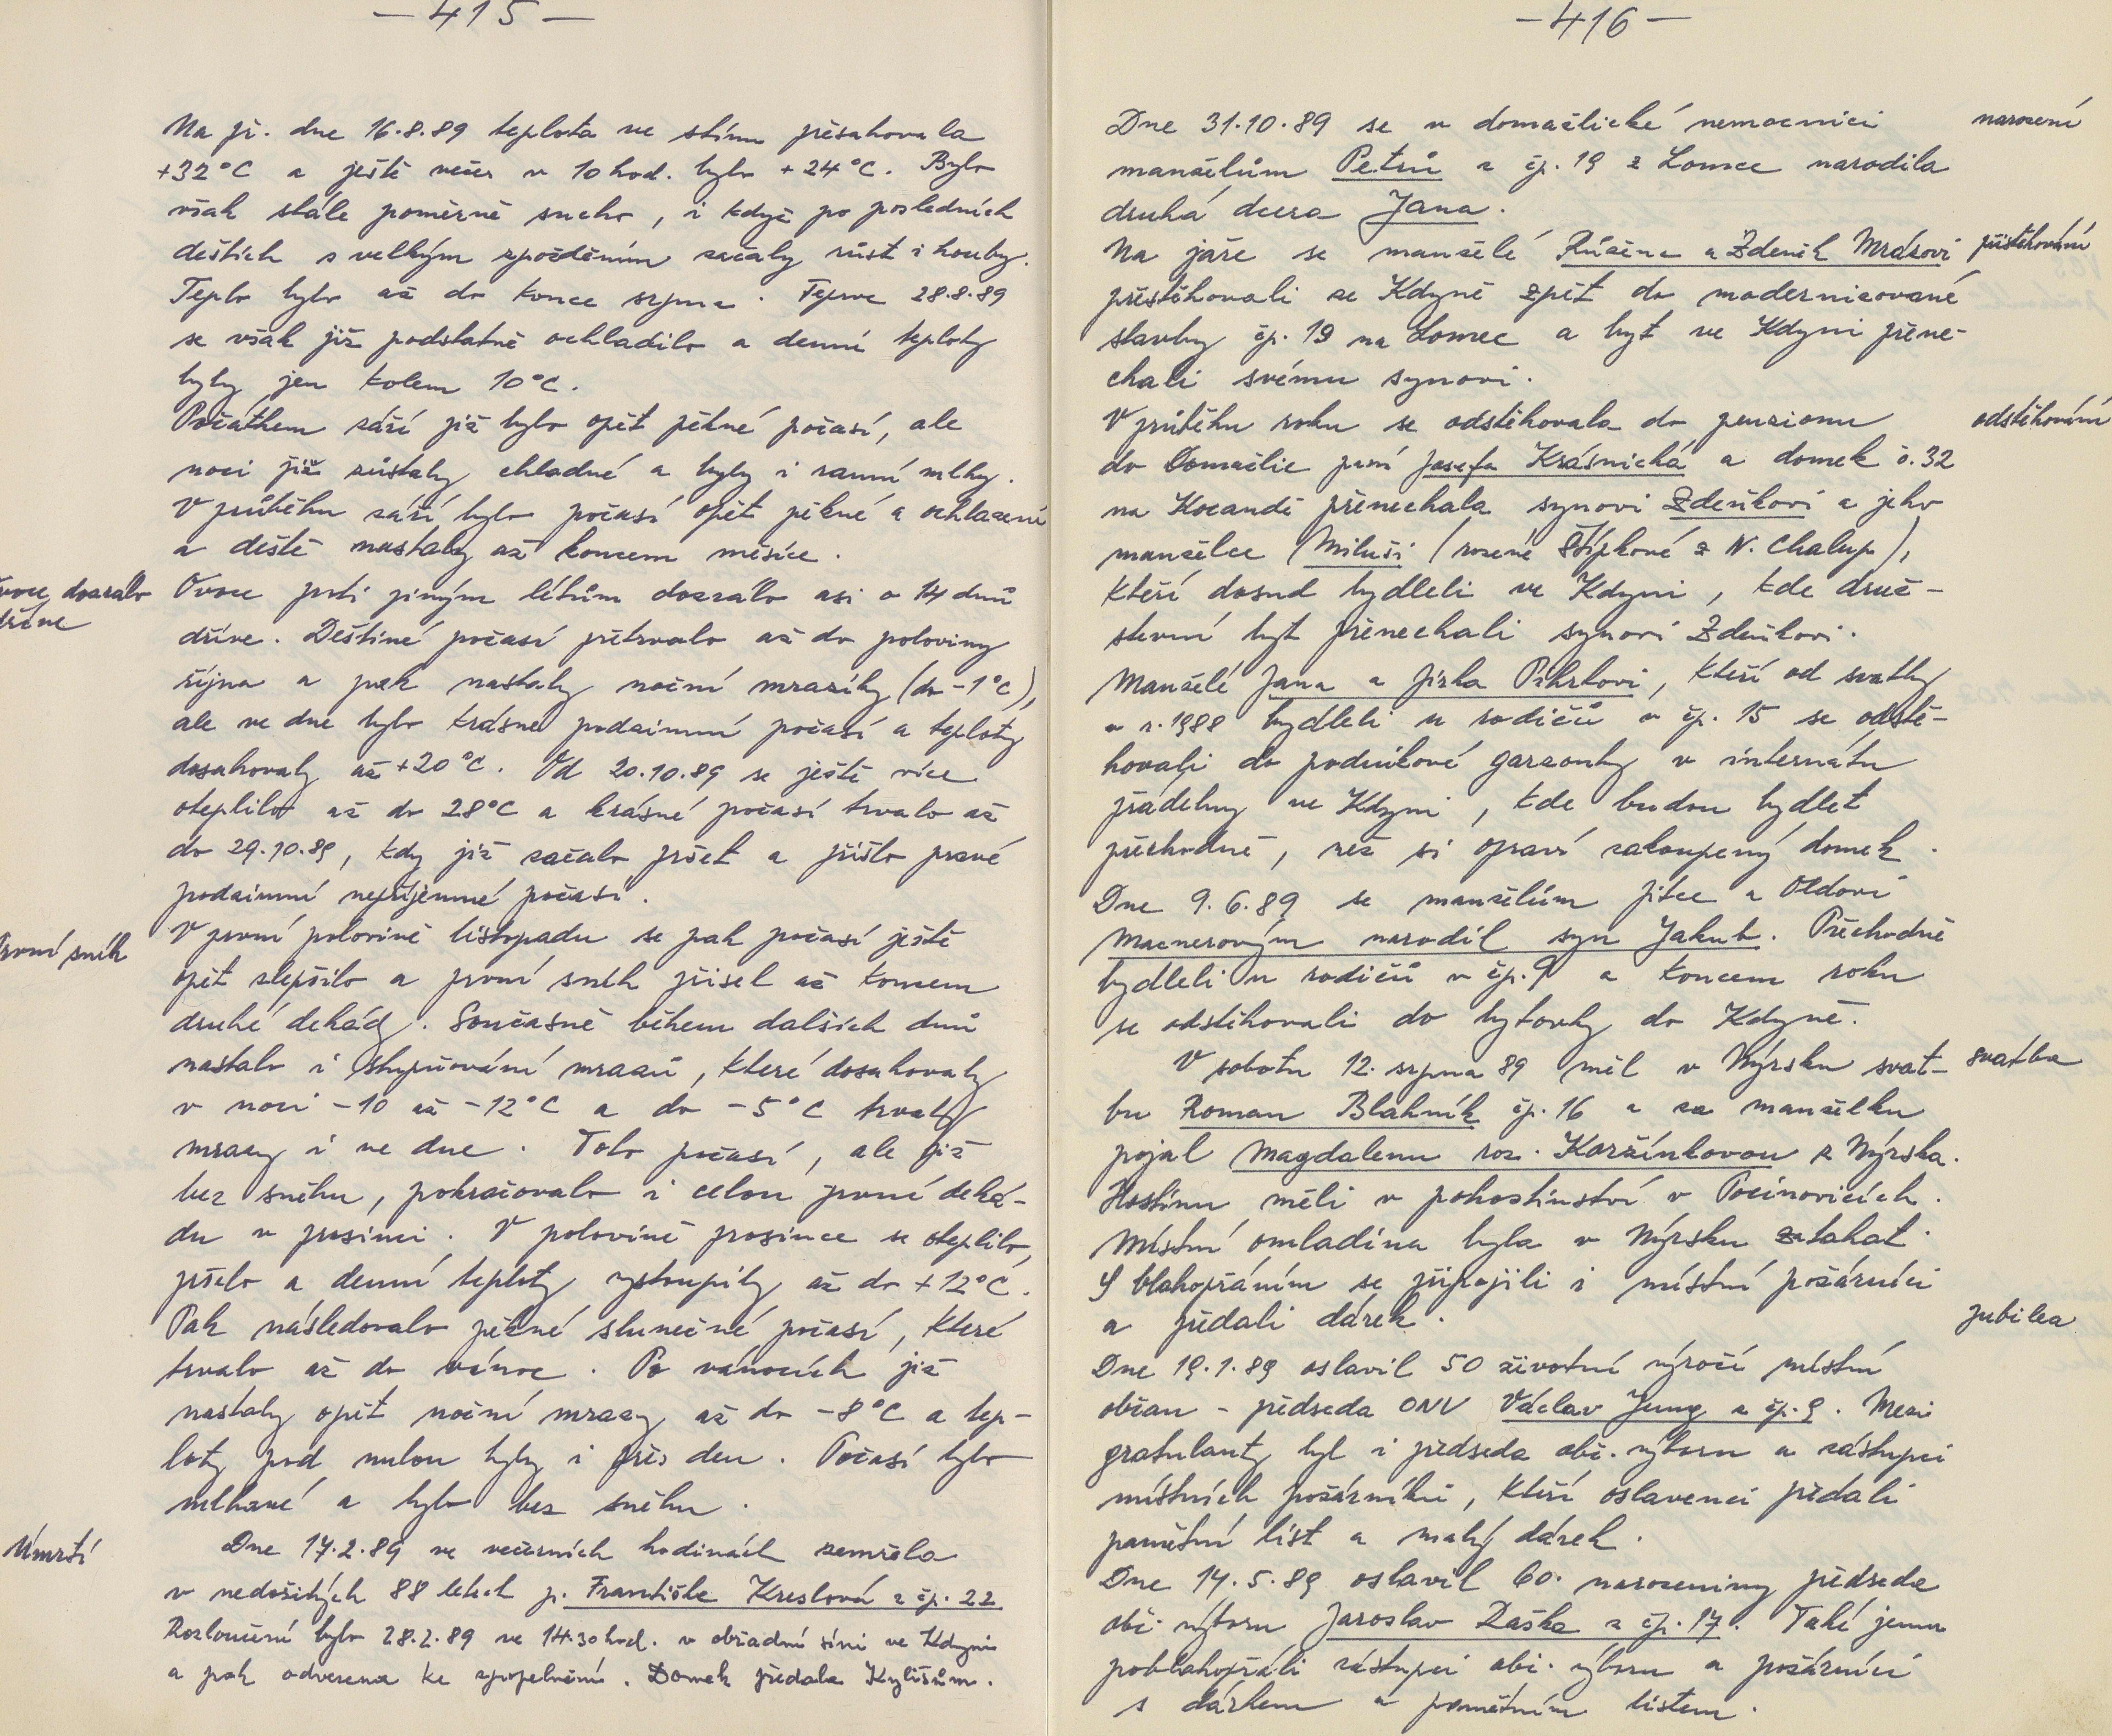 — 415 —
Na př. dne 16.8.89 teplota ve stínu přesahovala
+32°C a ještě večer v 10 hod. bylo +24°C. Bylo
však stále poměrně sucho, i když po posledních
deštích s velkým zpožděním začaly růst i houby.
Teplo bylo až do konce srpna. Teprve 28.8.89
se však již podstatně ochladilo a denní teploty
byly jen kolem 10°C.
Počátkem září již bylo opět pěkné počasí, ale
noci již zůstaly chladné a byly i ranní mlhy.
V průběhu září bylo počasí opět pěkné a ochlazení
a deště nastaly až koncem měsíce.
ovoce dozrálo
dříve
Ovoce proti jiným létům dozrálo asi o 14 dnů
dříve. Deštivé počasí přetrvalo až do poloviny
října a pak nastaly noční mrazíky (do -1°C),
ale ve dne bylo krásné podzimní počasí a teploty
dosahovaly až +20°C. Od 20.10.89 se ještě více
oteplilo až do 28°C a krásné počasí trvalo až
do 29.10.89, kdy již začalo pršet a přišlo pravé
podzimní nepříjemné počasí.
První sníh
V první polovině listopadu se pak počasí ještě
opět zlepšilo a první sníh přišel až koncem
druhé dekády. Současně během dalších dnů
nastalo i stupňování mrazů, které dosahovaly
v noci -10 až -12°C a do -5°C trvaly
mrazy i ve dne. Toto počasí, ale již
bez sněhu, pokračovalo i celou první deká-
du v prosinci. V polovině prosince se oteplilo,
pršelo a denní teploty vystoupily až do +12°C.
Pak následovalo pěkné slunečné počasí, které
trvalo až do vánoc. Po vánocích již
nastaly opět noční mrazy až do -8°C a tep-
loty pod nulou byly i přes den. Počasí bylo
mlhavé a bylo bez sněhu.
Úmrtí
Dne 17.2.89 ve večerních hodinách zemřela
v nedožitých 88 letech p. Františka Kreslová z čp. 22
Rozloučení bylo 28.2.89 ve 14.30 hod. v obřadní síni ve Kdyni
a pak odvezena ke zpopelnění. Domek předala Kylišům.
— 416 —
Dne 31.10.89 se v domažlické nemocnici
narození
manželům Petrů z čp. 19 z Lomce narodila
druhá dcera Jana.
Na jaře se manželé Růžena a Zdeněk Mrázovi
přistěhování
přestěhovali ze Kdyně zpět do modernizované
stavby čp. 19 na Lomec a byt ve Kdyni přene-
chali svému synovi.
V průběhu roku se odstěhovala do penzionu
odstěhování
do Domažlic paní Josefa Krásnická a domek č. 32
na Kocandě přenechala synovi Zdeňkovi a jeho
manželce Miluši (rozené Štípkové z N. Chalup),
kteří dosud bydleli ve Kdyni, kde druž-
stevní byt přenechali synovi Zdeňkovi.
Manželé Jana a Jirka Pikrtovi, kteří od svatby
v r. 1988 bydleli u rodičů v čp. 15 se odstě-
hovali do podnikové garzonky v internátu
přádelny ve Kdyni, kde budou bydlet
přechodně, než si opraví zakoupený domek.
Dne 9.6.89 se manželům Jitce a Oldovi
Macnerovým narodil syn Jakub. Přechodně
bydleli u rodičů v čp. 9 a koncem roku
se odstěhovali do bytovky do Kdyně.
V sobotu 12. srpna 89 měl v Nýrsku svat-
svatba
bu Roman Blahník čp. 16 a za manželku
pojal Magdalenu roz. Koržínkovou z Nýrska.
Hostinu měli v pohostinství v Pocinovicích.
Místní omladina byla v Nýrsku zatahat.
S blahopřáním se připojili i místní požárníci
a předali dárek.
jubilea
Dne 19.1.89 oslavil 50 životní výročí místní
občan - předseda ONV Václav Jung z čp. 9. Mezi
gratulanty byl i předseda obč. výboru a zástupci
místních požárníků, kteří oslavenci předali
pamětní list a malý dárek.
Dne 14.5.89 oslavil 60. narozeniny předseda
obč. výboru Jaroslav Raška z čp. 17. Také jemu
poblahopřáli zástupci obč. výboru a požárníci
s dárkem a pamětním listem.